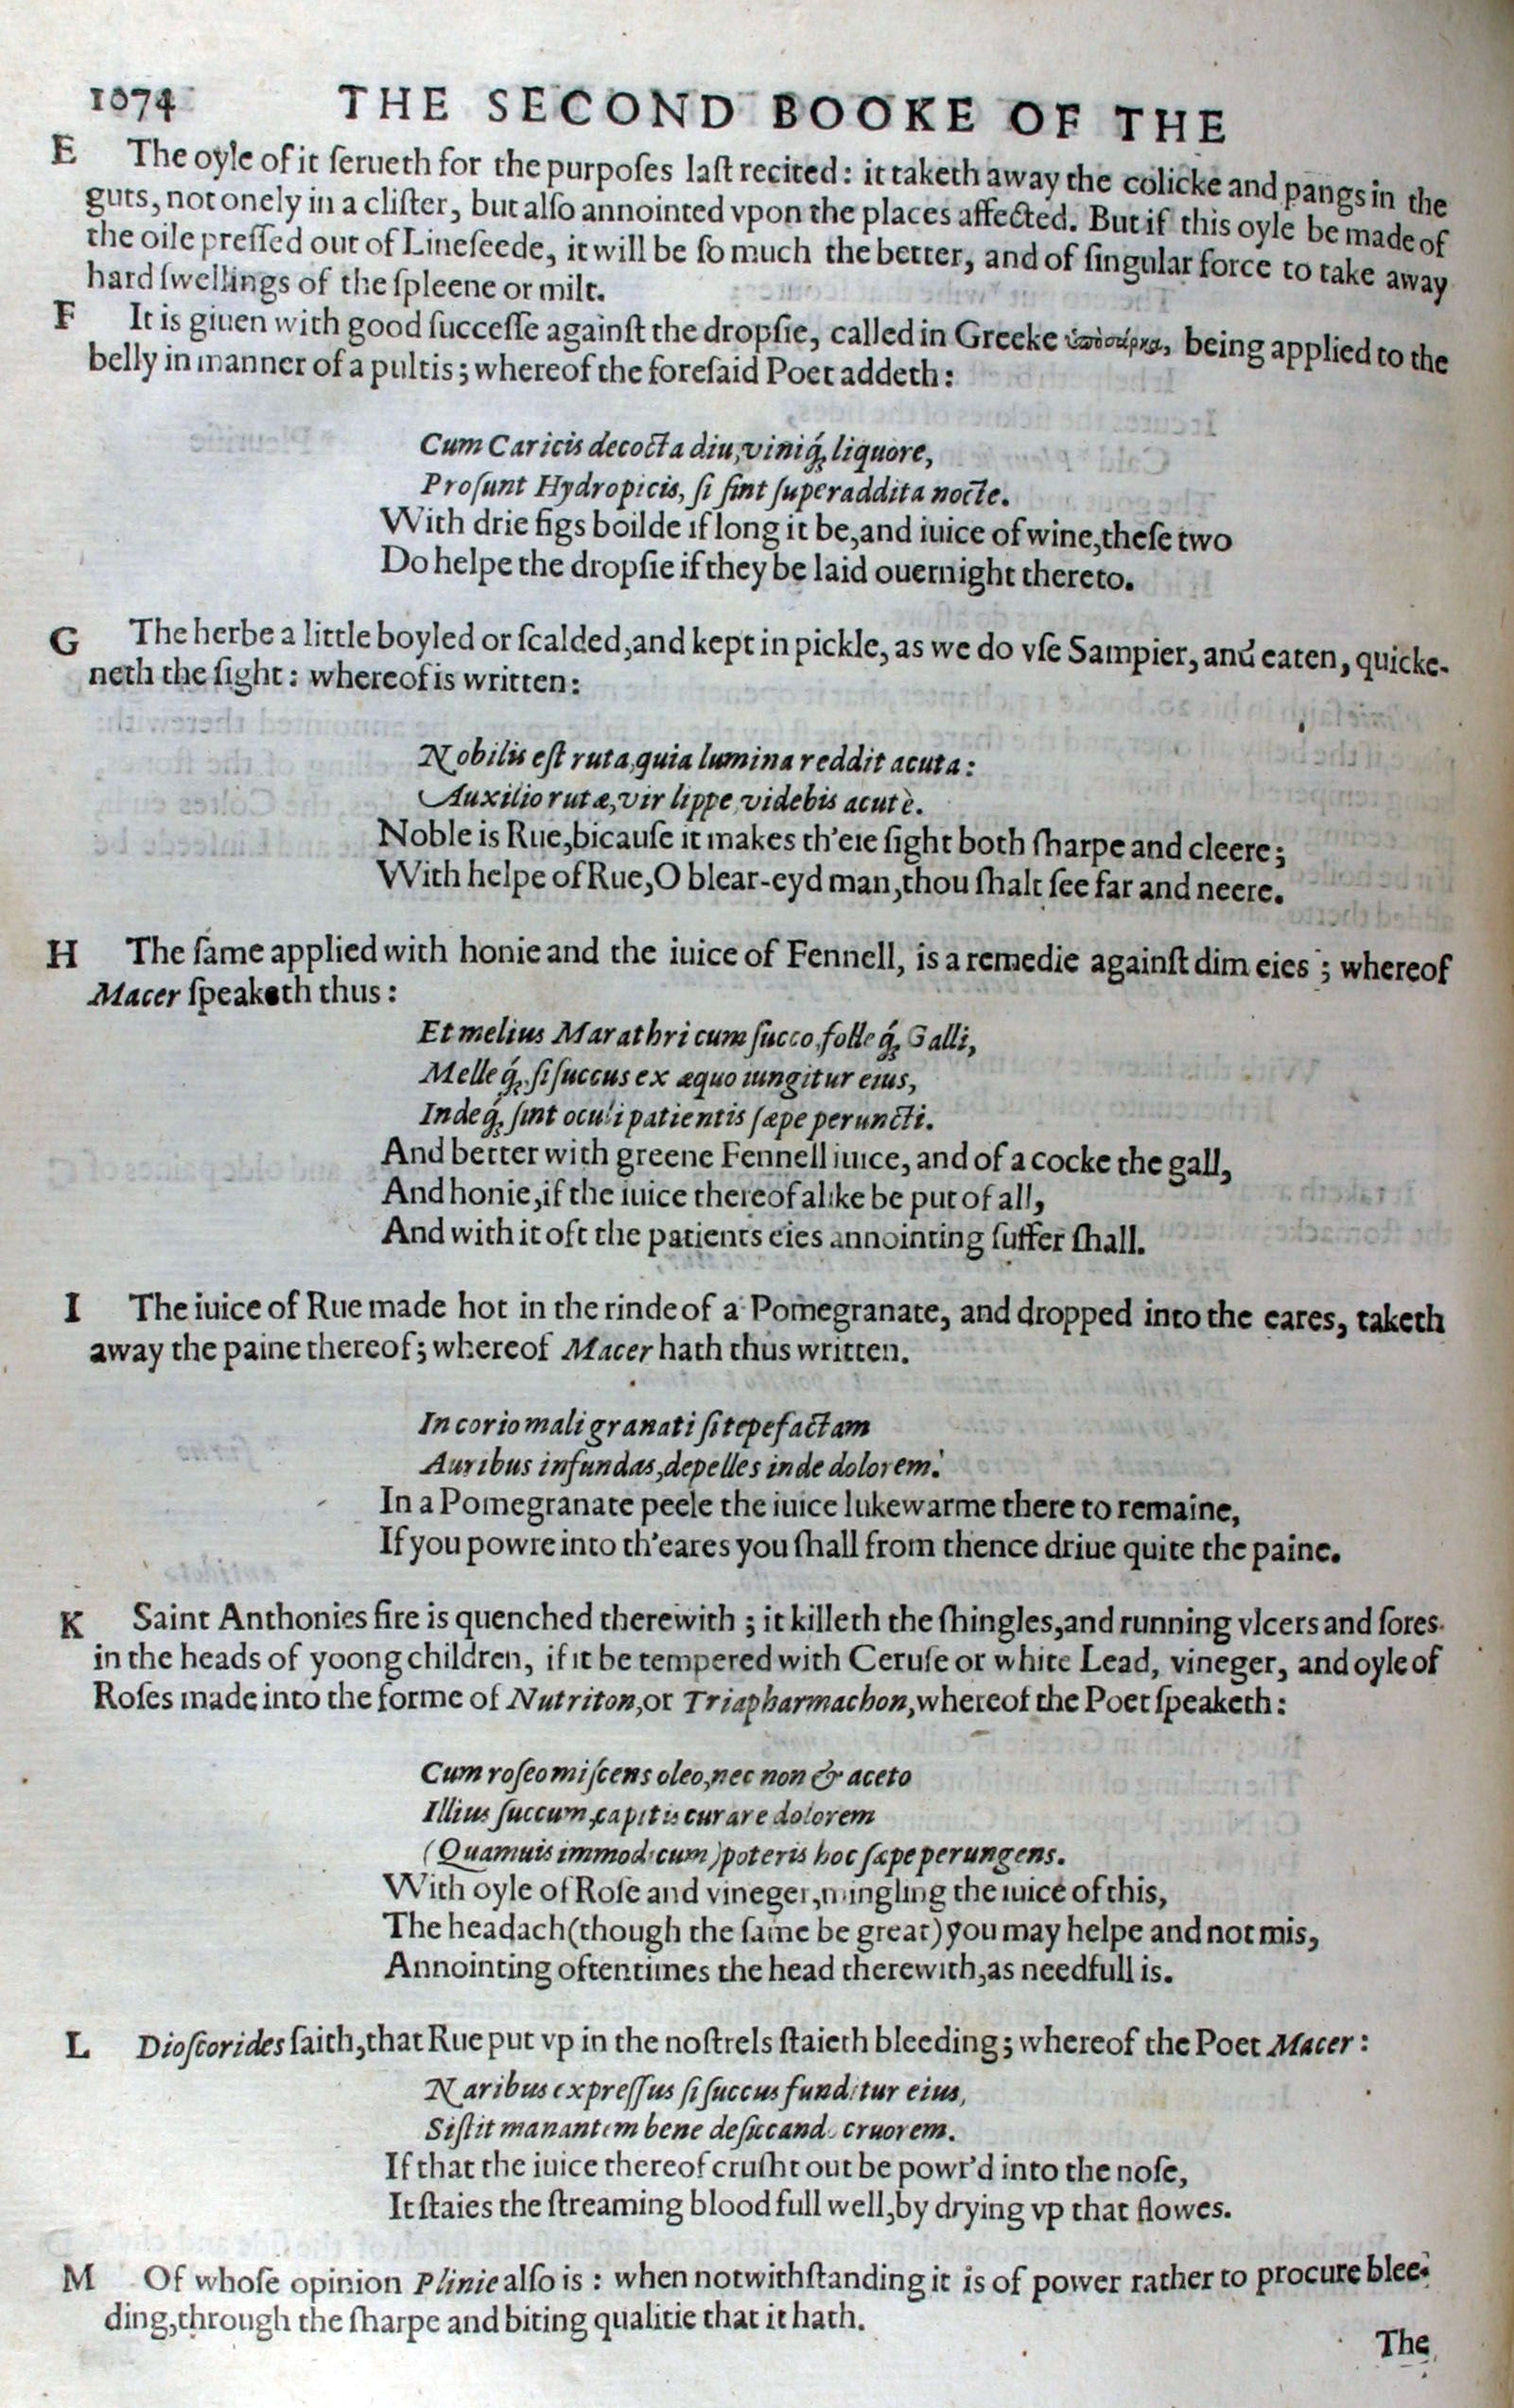 1074 THE SECOND BOOKE OF THE
E The oyle of it ſerueth for the purpoſes laſt recited: it taketh away the colicke and pangs in the
guts, not onely in a cliſter, but alſo annointed vpon the places affected. But if this oyle be made of
the oile preſſed out of Lineſeede, it will be ſo much the better, and of ſingular force to take away
hard ſwellings of the ſpleene or milt.
F It is giuen with good ſucceſſe againſt the dropſie, called in Greeke being applied to the
belly in manner of a pultis; whereof the foreſaid Poet addeth:
Cum Caricis decocta diu, viniq́; liquore,
Proſunt Hydropicis, ſi ſint ſuperaddita nocte.
With drie figs boilde if long it be, and iuice of wine, theſe two
Do helpe the dropſie if they be laid ouernight thereto.
G The herbe a little boyled or ſcalded, and kept in pickle, as we do vſe Sampier, and eaten, quicke-
neth the ſight: whereof is written:
Nobilis eſt ruta, quia lumina reddit acuta:
Auxilio rutæ, vir lippe, videbis acutè.
Noble is Rue, bicauſe it makes th'eie ſight both ſharpe and cleere;
With helpe of Rue, O blear-eyd man, thou ſhalt ſee far and neere.
H The ſame applied with honie and the iuice of Fennell, is a remedie againſt dim eies; whereof
Macer ſpeaketh thus:
Et melius Marathri cum ſucco, felleq́; Galli,
Melleq́; ſi ſuccus ex æquo iungitur eius,
Indeq́; ſint oculi patientis ſæpe peruncti.
And better with greene Fennell iuice, and of a cocke the gall,
And honie, if the iuice thereof alike be put of all,
And with it oft the patients eies annointing ſuffer ſhall.
I The iuice of Rue made hot in the rinde of a Pomegranate, and dropped into the eares, taketh
away the paine thereof; whereof Macer hath thus written.
In corio mali granati ſi tepefactam
Auribus infundas, depelles inde dolorem.
In a Pomegranate peele the iuice lukewarme there to remaine,
If you powre into th'eares you ſhall from thence driue quite the paine.
K Saint Anthonies fire is quenched therewith; it killeth the ſhingles, and running vlcers and ſores
in the heads of yoong children, if it be tempered with Ceruſe or white Lead, vineger, and oyle of
Roſes made into the forme of Nutriton, or Triapharmachon, whereof the Poet ſpeaketh:
Cum roſeo miſcens oleo, nec non & aceto
Illius ſuccum, capitis curare dolorem
(Quamuis immodicum) poteris hoc ſæpe perungens.
With oyle of Roſe and vineger, mingling the iuice of this,
The headach (though the ſame be great) you may helpe and not mis,
Annointing oftentimes the head therewith, as needfull is.
L Dioſcorides ſaith, that Rue put vp in the noſtrels ſtaieth bleeding; whereof the Poet Macer:
Naribus expreſſus ſi ſuccus funditur eius,
Siſtit manantem bene deſiccando cruorem.
If that the iuice thereof cruſht out be powr'd into the noſe,
It ſtaies the ſtreaming blood full well, by drying vp that flowes.
M Of whoſe opinion Plinie alſo is: when notwithſtanding it is of power rather to procure blee-
ding, through the ſharpe and biting qualitie that it hath.
The